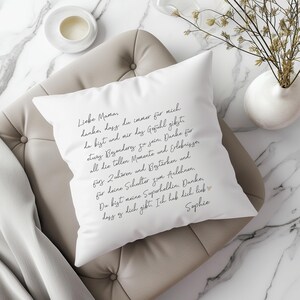 Liebe Mama,
danke, dass du immer für mich
da bist und mir das Gefühl gibst,
etwas Besonderes zu sein. Danke für
all die tollen Momente und Erlebnisse,
fürs Zuhören und Bestärken und
für deine Schulter zum Anlehnen.
Du bist meine Superheldin. Danke,
dass es dich gibt. Ich hab dich lieb ♡
Sophie